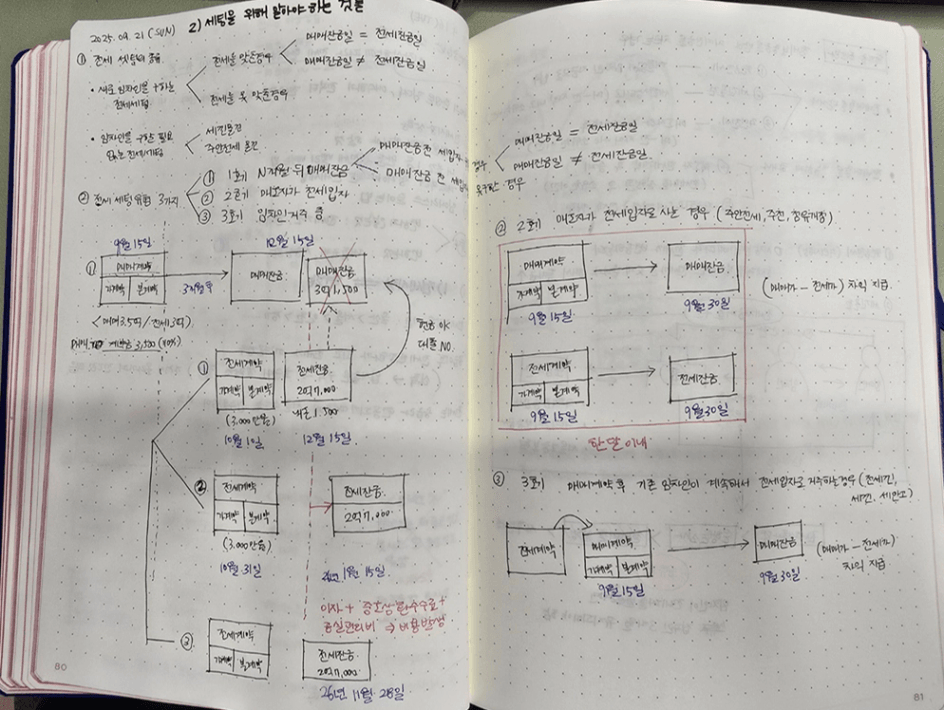 2025.09.21 (SUN) 2) 세팅을 위해 알아야 하는 것들
① 전세 셋팅의 종류
• 새로 임차인을 구하는
전세세팅
전세를 맞춘경우
매매잔금일 = 전세잔금일
매매잔금일 ≠ 전세잔금일
전세를 못 맞춘경우
• 임차인을 구할 필요
없는 전세세팅
세낀물건
주인전세 물건
② 전세 세팅 유형 3가지
① 1호기
뒤 매매잔금
매매잔금 전 세입자
매매잔금 전 세입
② 2호기 매도자가 전세입자
③ 3호기 임차인 거주 중
9월 15일
12월 15일
①
매매계약
가계약 본계약
3개월 후
매매잔금
매매잔금
3억1,500
<매매3.5억/전세3억>
계약금 3,500 (10%)
대출 NO.
①
전세계약
가계약 본계약
(3.000만원)
10월 1일
전세잔금
2억7,000
1.500
12월 15일
②
전세계약
가계약 본계약
(3.000만원)
10월 31일
전세잔금
2억7,000
1월 15일
이자 + 중도상환수수료+
공실관리비 → 비용발생
③
전세계약
가계약 본계약
전세잔금
2억7,000
26년 11월 28일
80
경우
매매잔금일 = 전세잔금일
매매잔금일 ≠ 전세잔금일.
못구한 경우
② 2호기 매도자가 전세입자로 사는 경우 (주인전세, 주전, 점유개정)
매매계약
가계약 본계약
9월 15일
매매잔금
9월 30일
(매매가 – 전세가) 차익 지급
전세계약
가계약 본계약
9월 15일
전세잔금
9월 30일
한달이내
③ 3호기 매매계약 후 기존 임차인이 계속해서 전세입자로 거주하는경우 (전세낀,
세낀, 세안고)
전세계약
매매계약
가계약 본계약
9월 15일
매매잔금
9월 30일
(매매가 – 전세가)
차익 지급
81